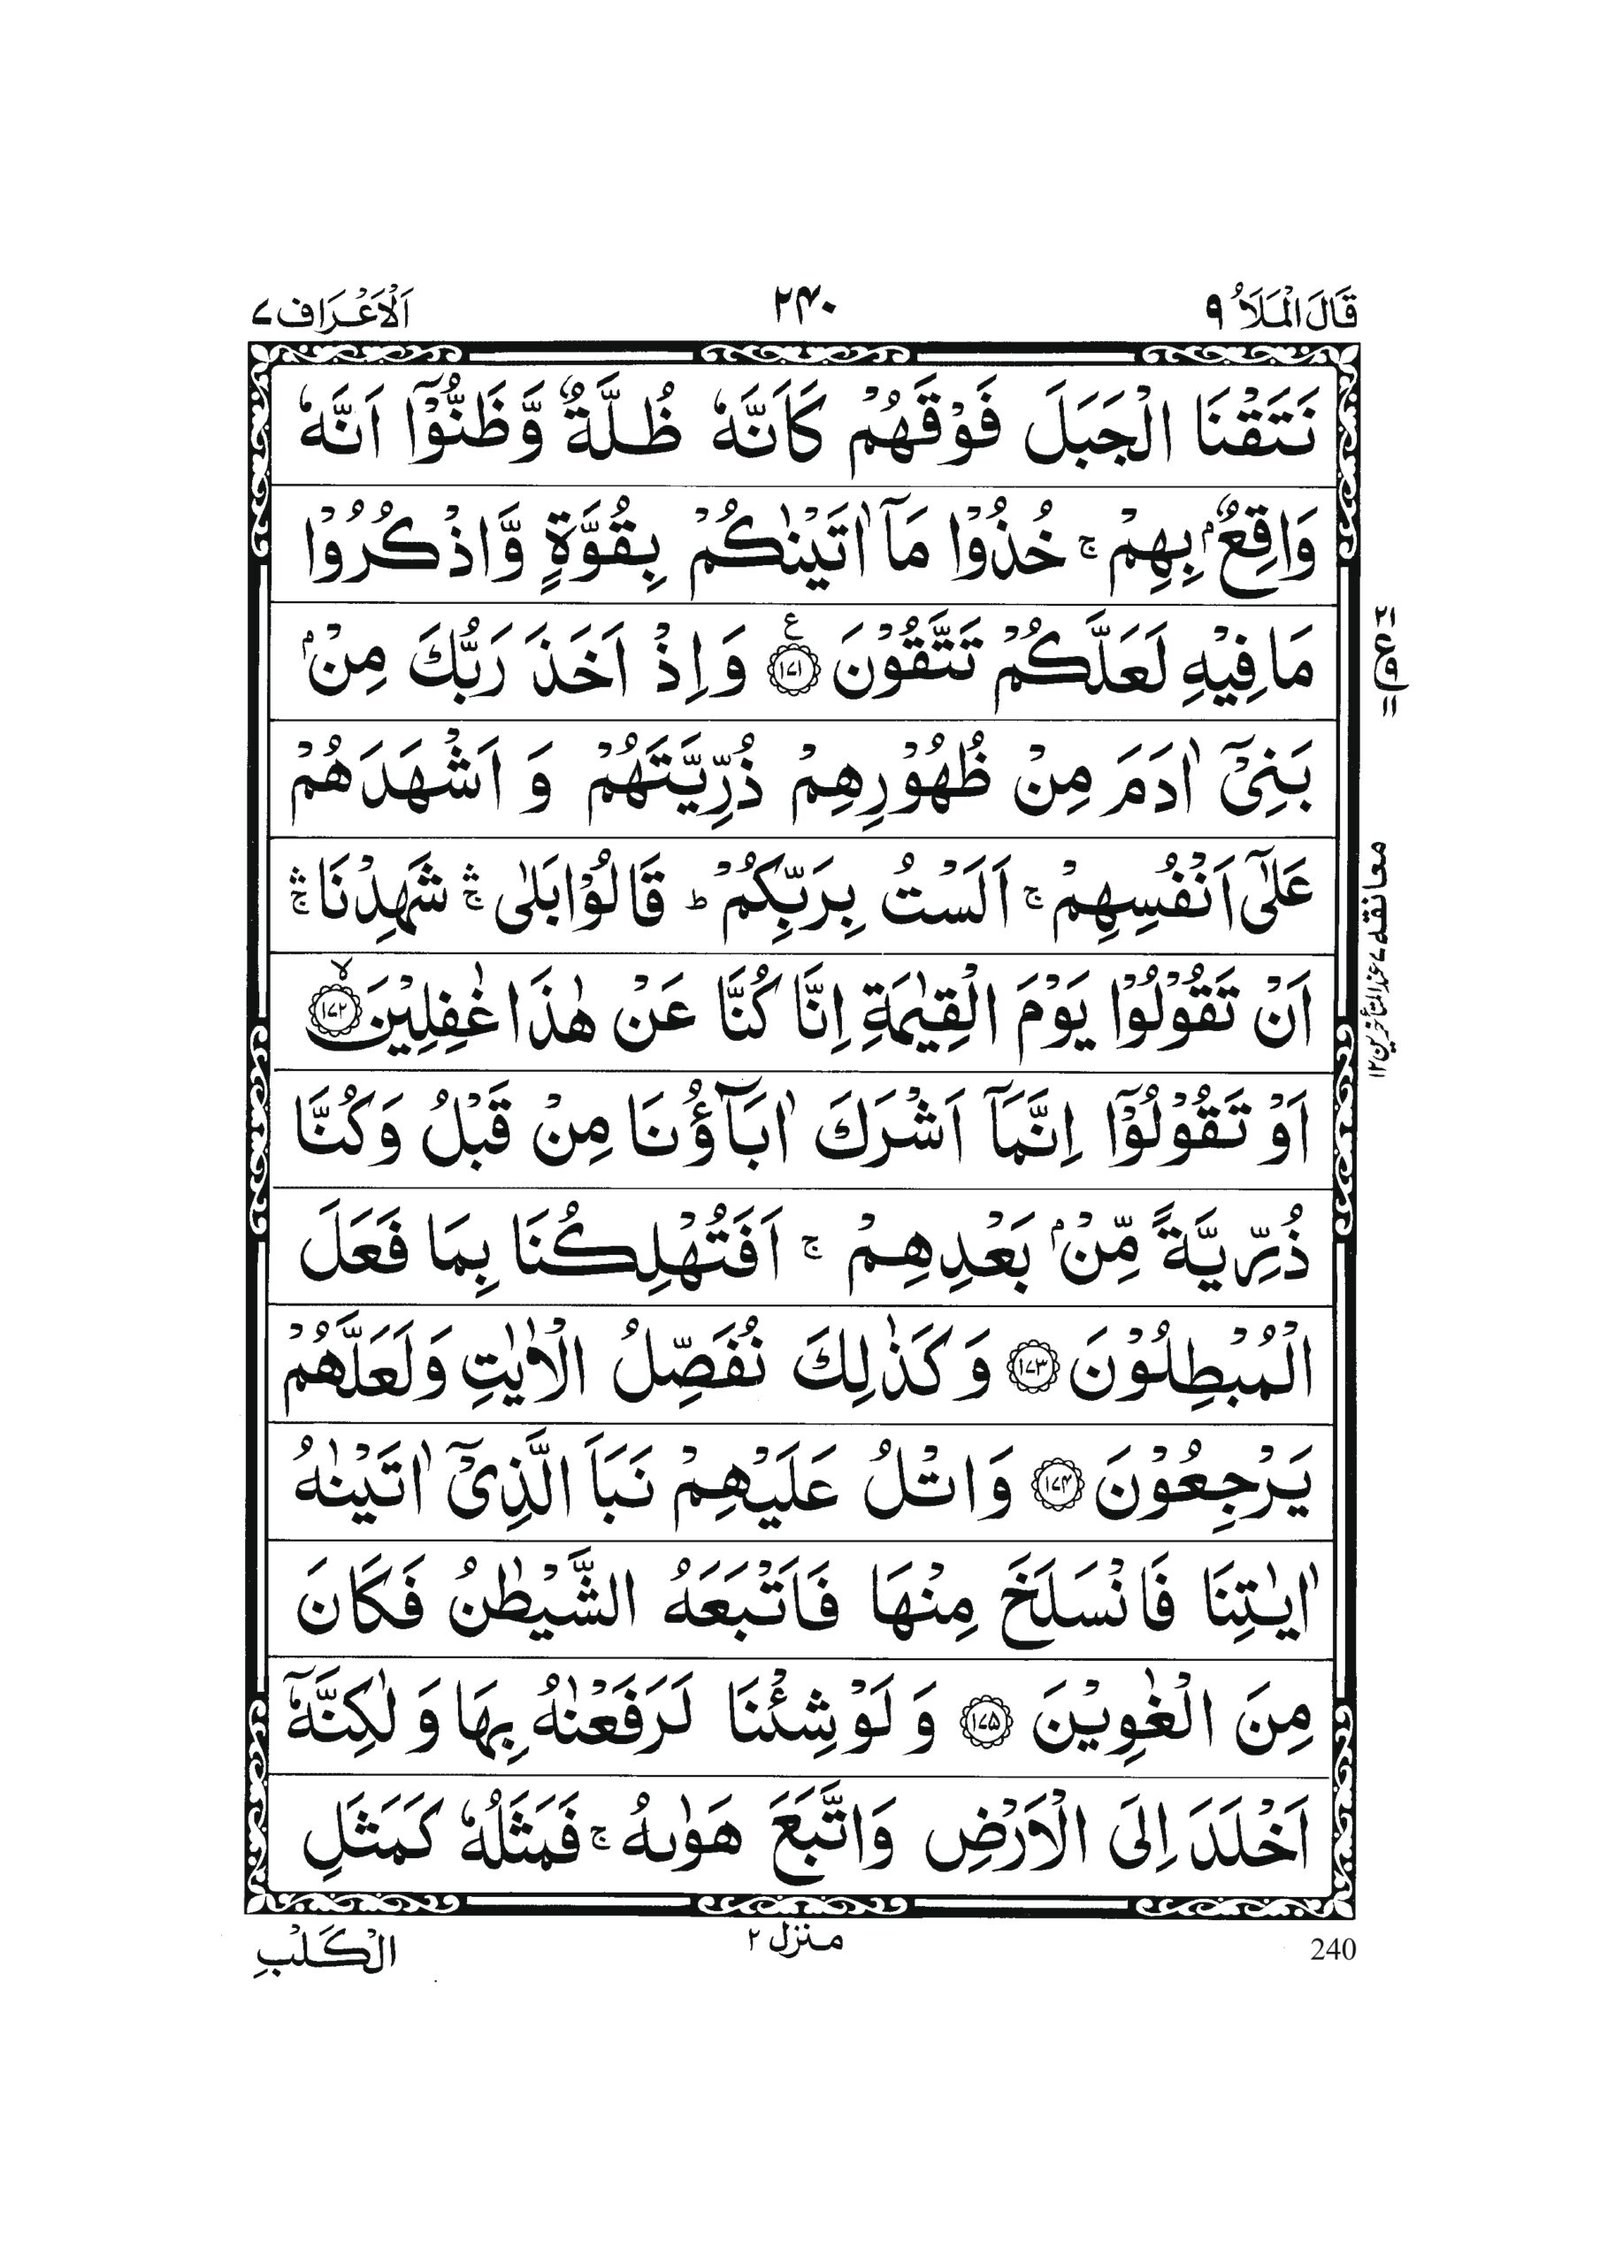 قَالَ الْمَلَاُ ٩
٢٤٠
اَلْاَعْرَاف ٧
نَتَقْنَا الْجَبَلَ فَوْقَهُمْ كَاَنَّهٗ ظُلَّةٌ وَّظَنُّوْۤا اَنَّهٗ
وَاقِعٌۢ بِهِمْ ۚ خُذُوْا مَاۤ اٰتَيْنٰكُمْ بِقُوَّةٍ وَّاذْكُرُوْا
مَا فِيْهِ لَعَلَّكُمْ تَتَّقُوْنَ ﴿١٧١﴾ ع وَ اِذْ اَخَذَ رَبُّكَ مِنْۢ
بَنِيْۤ اٰدَمَ مِنْ ظُهُوْرِهِمْ ذُرِّيَّتَهُمْ وَ اَشْهَدَهُمْ
عَلٰۤى اَنْفُسِهِمْ ۚ اَلَسْتُ بِرَبِّكُمْ ؕ قَالُوْا بَلٰى ۛۚ شَهِدْنَا ۛۚ
اَنْ تَقُوْلُوْا يَوْمَ الْقِيٰمَةِ اِنَّا كُنَّا عَنْ هٰذَا غٰفِلِيْنَ ۙ﴿١٧٢﴾
اَوْ تَقُوْلُوْۤا اِنَّمَاۤ اَشْرَكَ اٰبَآؤُنَا مِنْ قَبْلُ وَكُنَّا
ذُرِّيَّةً مِّنْۢ بَعْدِهِمْ ۚ اَفَتُهْلِكُنَا بِمَا فَعَلَ
الْمُبْطِلُوْنَ ﴿١٧٣﴾ وَ كَذٰلِكَ نُفَصِّلُ الْاٰيٰتِ وَ لَعَلَّهُمْ
يَرْجِعُوْنَ ﴿١٧٤﴾ وَ اتْلُ عَلَيْهِمْ نَبَاَ الَّذِيْۤ اٰتَيْنٰهُ
اٰيٰتِنَا فَانْسَلَخَ مِنْهَا فَاَتْبَعَهُ الشَّيْطٰنُ فَكَانَ
مِنَ الْغٰوِيْنَ ﴿١٧٥﴾ وَ لَوْ شِئْنَا لَرَفَعْنٰهُ بِهَا وَ لٰكِنَّهٗۤ
اَخْلَدَ اِلَى الْاَرْضِ وَاتَّبَعَ هَوٰىهُ ۚ فَمَثَلُهٗ كَمَثَلِ
٢١
ع
٩
١١
معانقة ٧ عند المتأخرين ١٢
240
منزل ٢
الْكَلْبِ